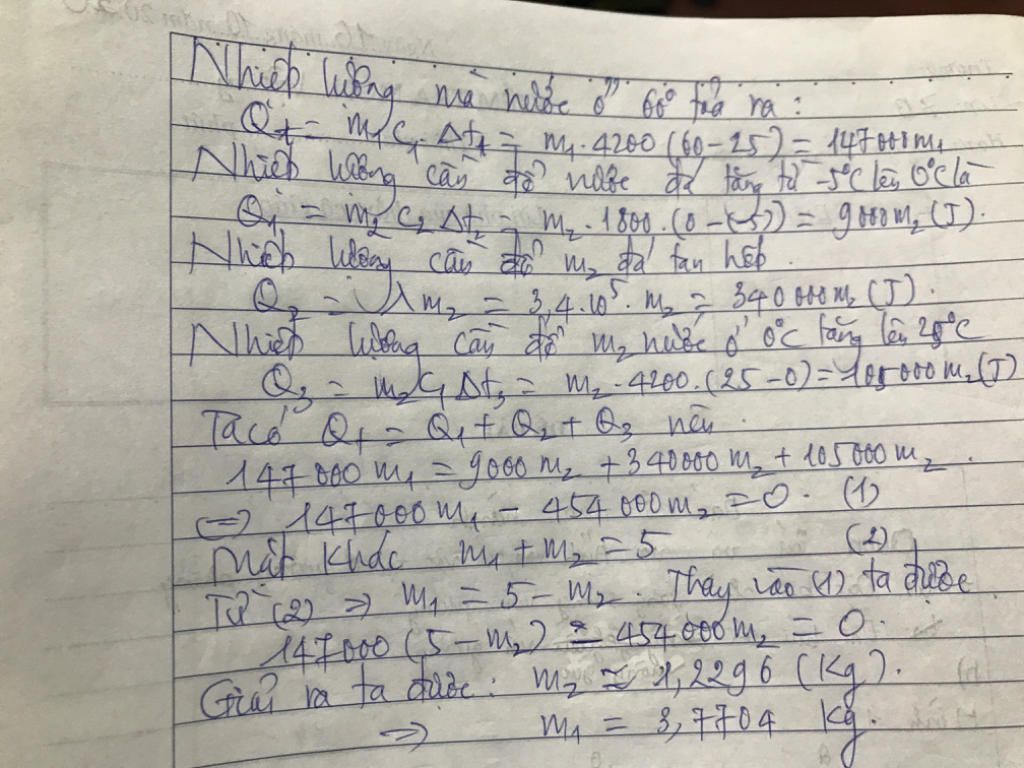 Nhiệt lượng mà nước ở 60° toả ra :
Qt = m₁ c₁ . Δt₁ = m₁ . 4200 (60 - 25) = 147000m₁
Nhiệt lượng cần để nước đá tăng từ -5°C lên 0°C là
Q₁ = m₂ c₂ Δt₂ = m₂ . 1800 . (0 - (-5)) = 9000m₂ (J).
Nhiệt lượng cần để m₂ đá tan hết .
Q₂ = λ m₂ = 3,4.10⁵. m₂ = 340 000m₂ (J) .
Nhiệt lượng cần để m₂ nước ở 0°C tăng lên 25°C
Q₃ = m₂c₁ Δt₃ = m₂ . 4200. (25 - 0) = 105 000m₂ (J)
Ta có Qt = Q₁ + Q₂ + Q₃ nên .
147 000 m₁ = 9000 m₂ + 340000 m₂ + 105 000 m₂ .
⇔ 147 000 m₁ - 454 000m₂ = 0 . (1)
Mặt khác m₁ + m₂ = 5 (2)
Từ (2) ⇒ m₁ = 5 - m₂ . Thay vào (1) ta được
147 000 (5 - m₂) - 454 000m₂ = 0 .
Giải ra ta được : m₂ ≈ 1,2296 (Kg).
⇒ m₁ = 3,7704 Kg.